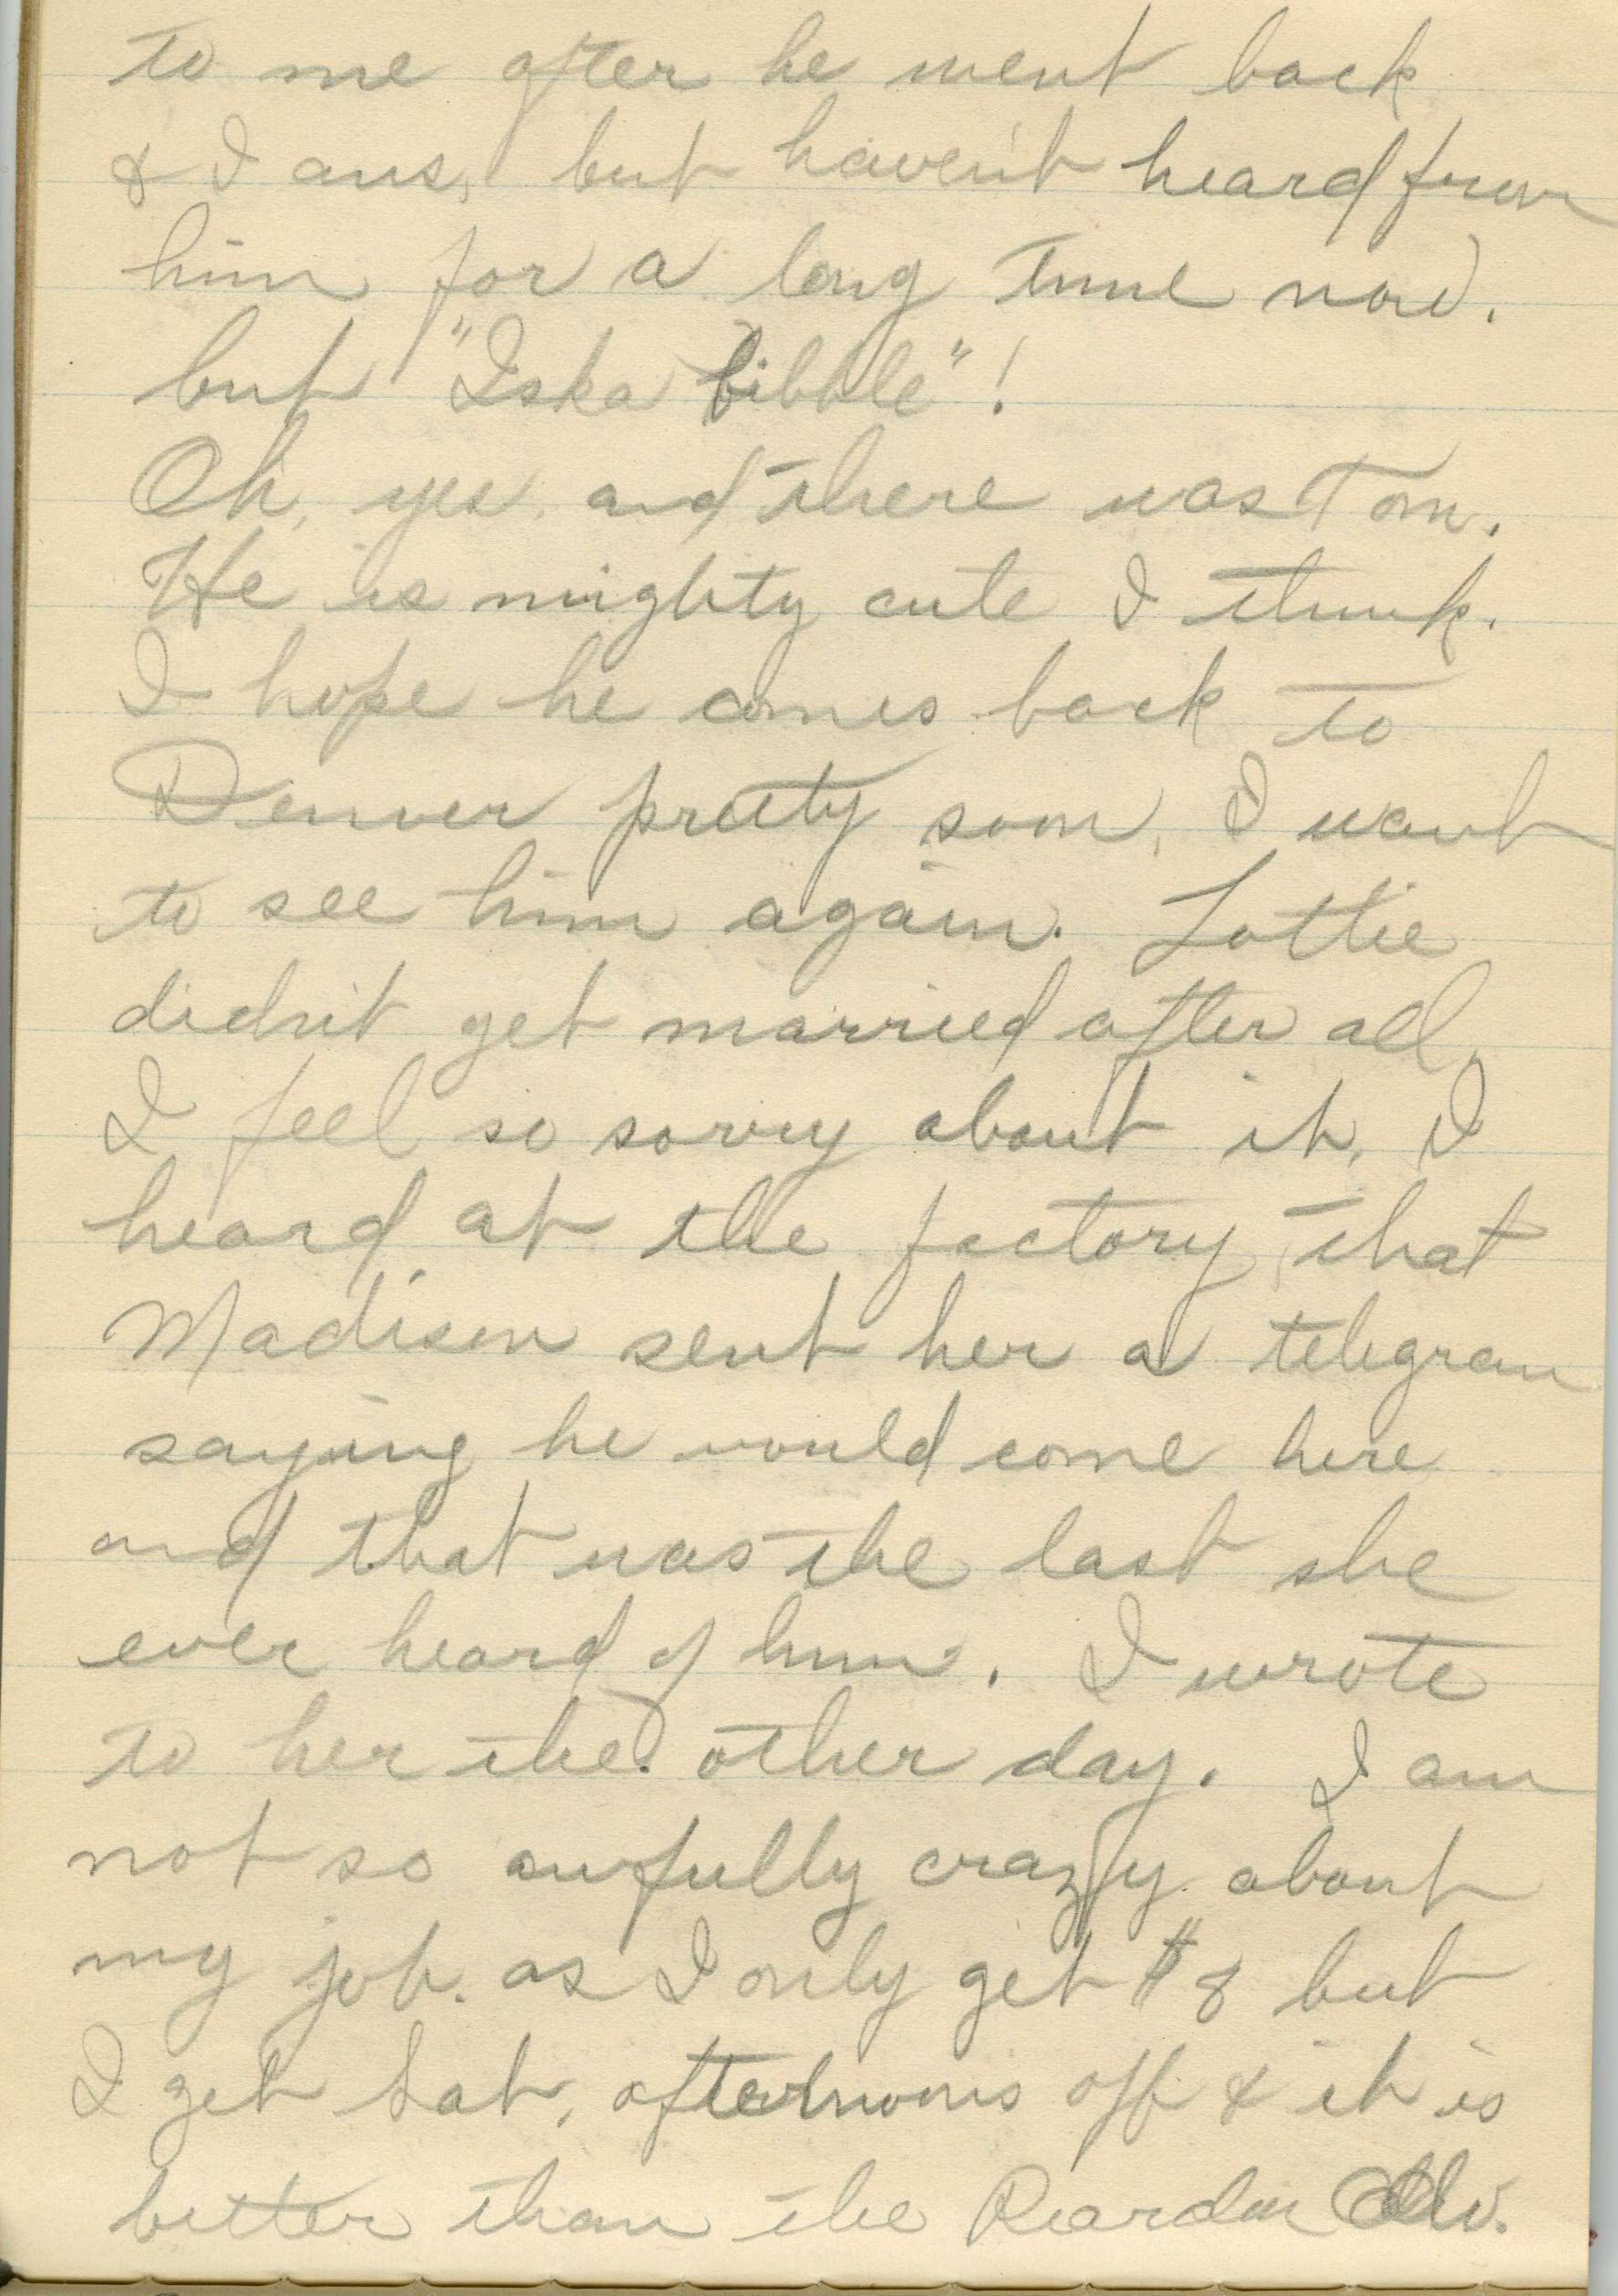 to me after he went back
& I ans, but haven't heard from
him for a long time now.
but "Iska bibble"!
Oh, yes, and there was Tom.
He is mighty cute I think.
I hope he comes back to
Denver pretty soon, I want
to see him again. Lottie
didn't get married after all,
I feel so sorry about it, I
heard at the factory that
Madison sent her a telegram
saying he would come here
and that was the last she
ever heard of him. I wrote
to her the other day. I am
not so awfully crazy about
my job. as I only get $8 but
I get Sat, afternoons off & it is
better than the Reardon